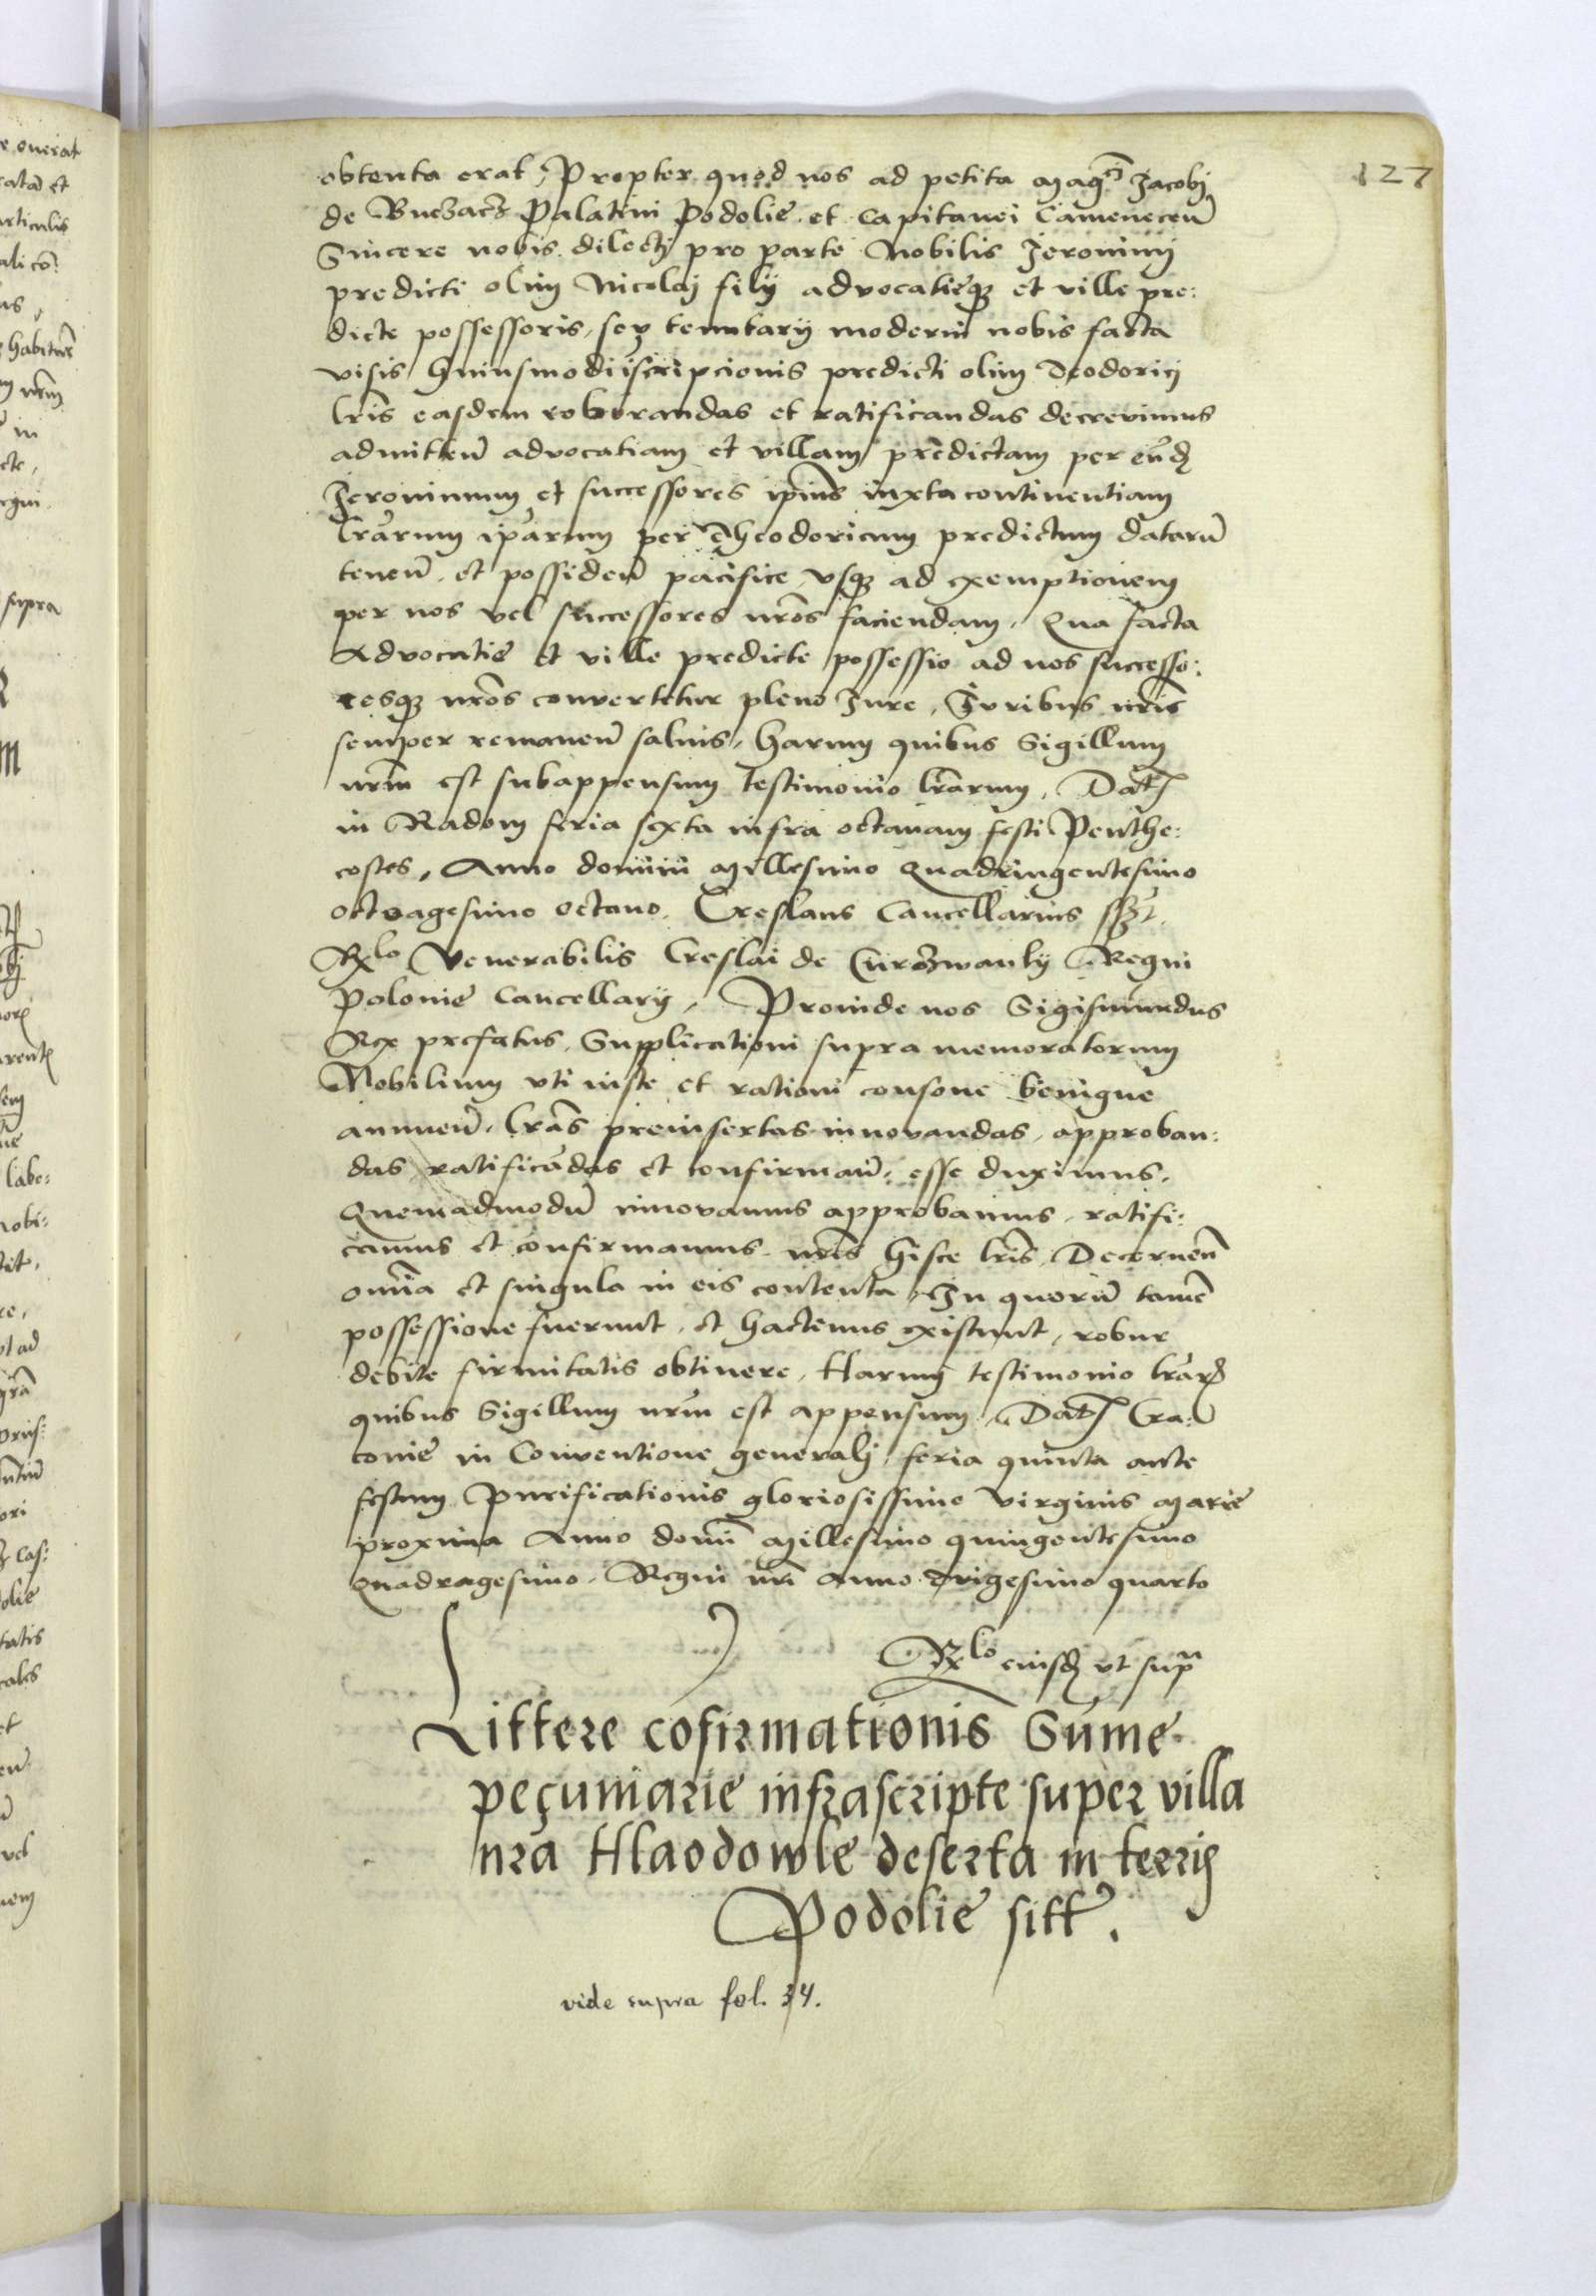 127
obtenta erat, Propter quod nos ad petita Mag^ci Jacobj
de Buczacz Palatini Podolie et Capitanei Cameneceñ
Sincere nobis dilectj pro parte Nobilis Jeronimj
predicti olim Nicolaj filij advocatieq₃ et ville pre:
dicte possessoris, seu tenutarij moderni nobis facta
visis huiusmodi inscripcionis predicti olim Deodorici
lr̃is easdem roborandas et ratificandas decrevimus
admitteñ advocatiam et villam predictam per eund̃
Jeronimum et successores ip̃ius iuxta continentiam
lr̃arum ip̃arum per Theodoricum predictum datarũ
teneñ et possideñ pacifice, vsq₃ ad exemptionem
per nos vel successores nr̃os faciendam, Qua facta
Advocatie et ville predicte possessio ad nos successo:
resq₃ nr̃os convertetur pleno Jure, Juribus nr̃is
semper remaneñ salvis, harum quibus Sigillum
nr̃m est subappensum testimonio lr̃arum, Dat̃
in Radom feria sexta infra octavam festi Penthe:
costes, Anno domini Millesimo Quadringentesimo
octuagesimo octavo. Creslaus Cancellarius sszt.
R^lo Venerabilis Creslai de Curozwanky Regni
Polonie Cancellarij, Proinde nos Sigismundus
Rex prefatus, Supplicationi supra memoratorum
Nobilium vti iuste et rationi consone benigne
annueñ, lr̃as preinsertas innovandas, approban:
das ratificãdas et confirmañ, esse duximus,
Quemadmodũ innovamus approbamus, ratifi:
camus et confirmamus nr̃is hisce lr̃is, Decerneñ
omĩa et singula in eis contenta, In quorũ tamẽ
possessione fuerunt, et hactenus existunt, robur
debite firmitatis obtinere, Harum testimonio lr̃arũ
quibus Sigillum nr̃m est appensum, Dat̃ Cra:
covie in Conventione generalj feria quinta ante
festum Purificationis gloriosissime Virginis Marie
proxima Anno domĩ Millesimo quingentesimo
Quadragesimo, Regni nr̃i Anno Trigesimo quarto
R^lo eiusd̃ vt sup^a
Littere cõfirmationis Sũme
pecuniarie infrascripte super villa
nr̃a Hlaodowle deserta in terris
Podolie sitt̃.
vide supra fol. 34.